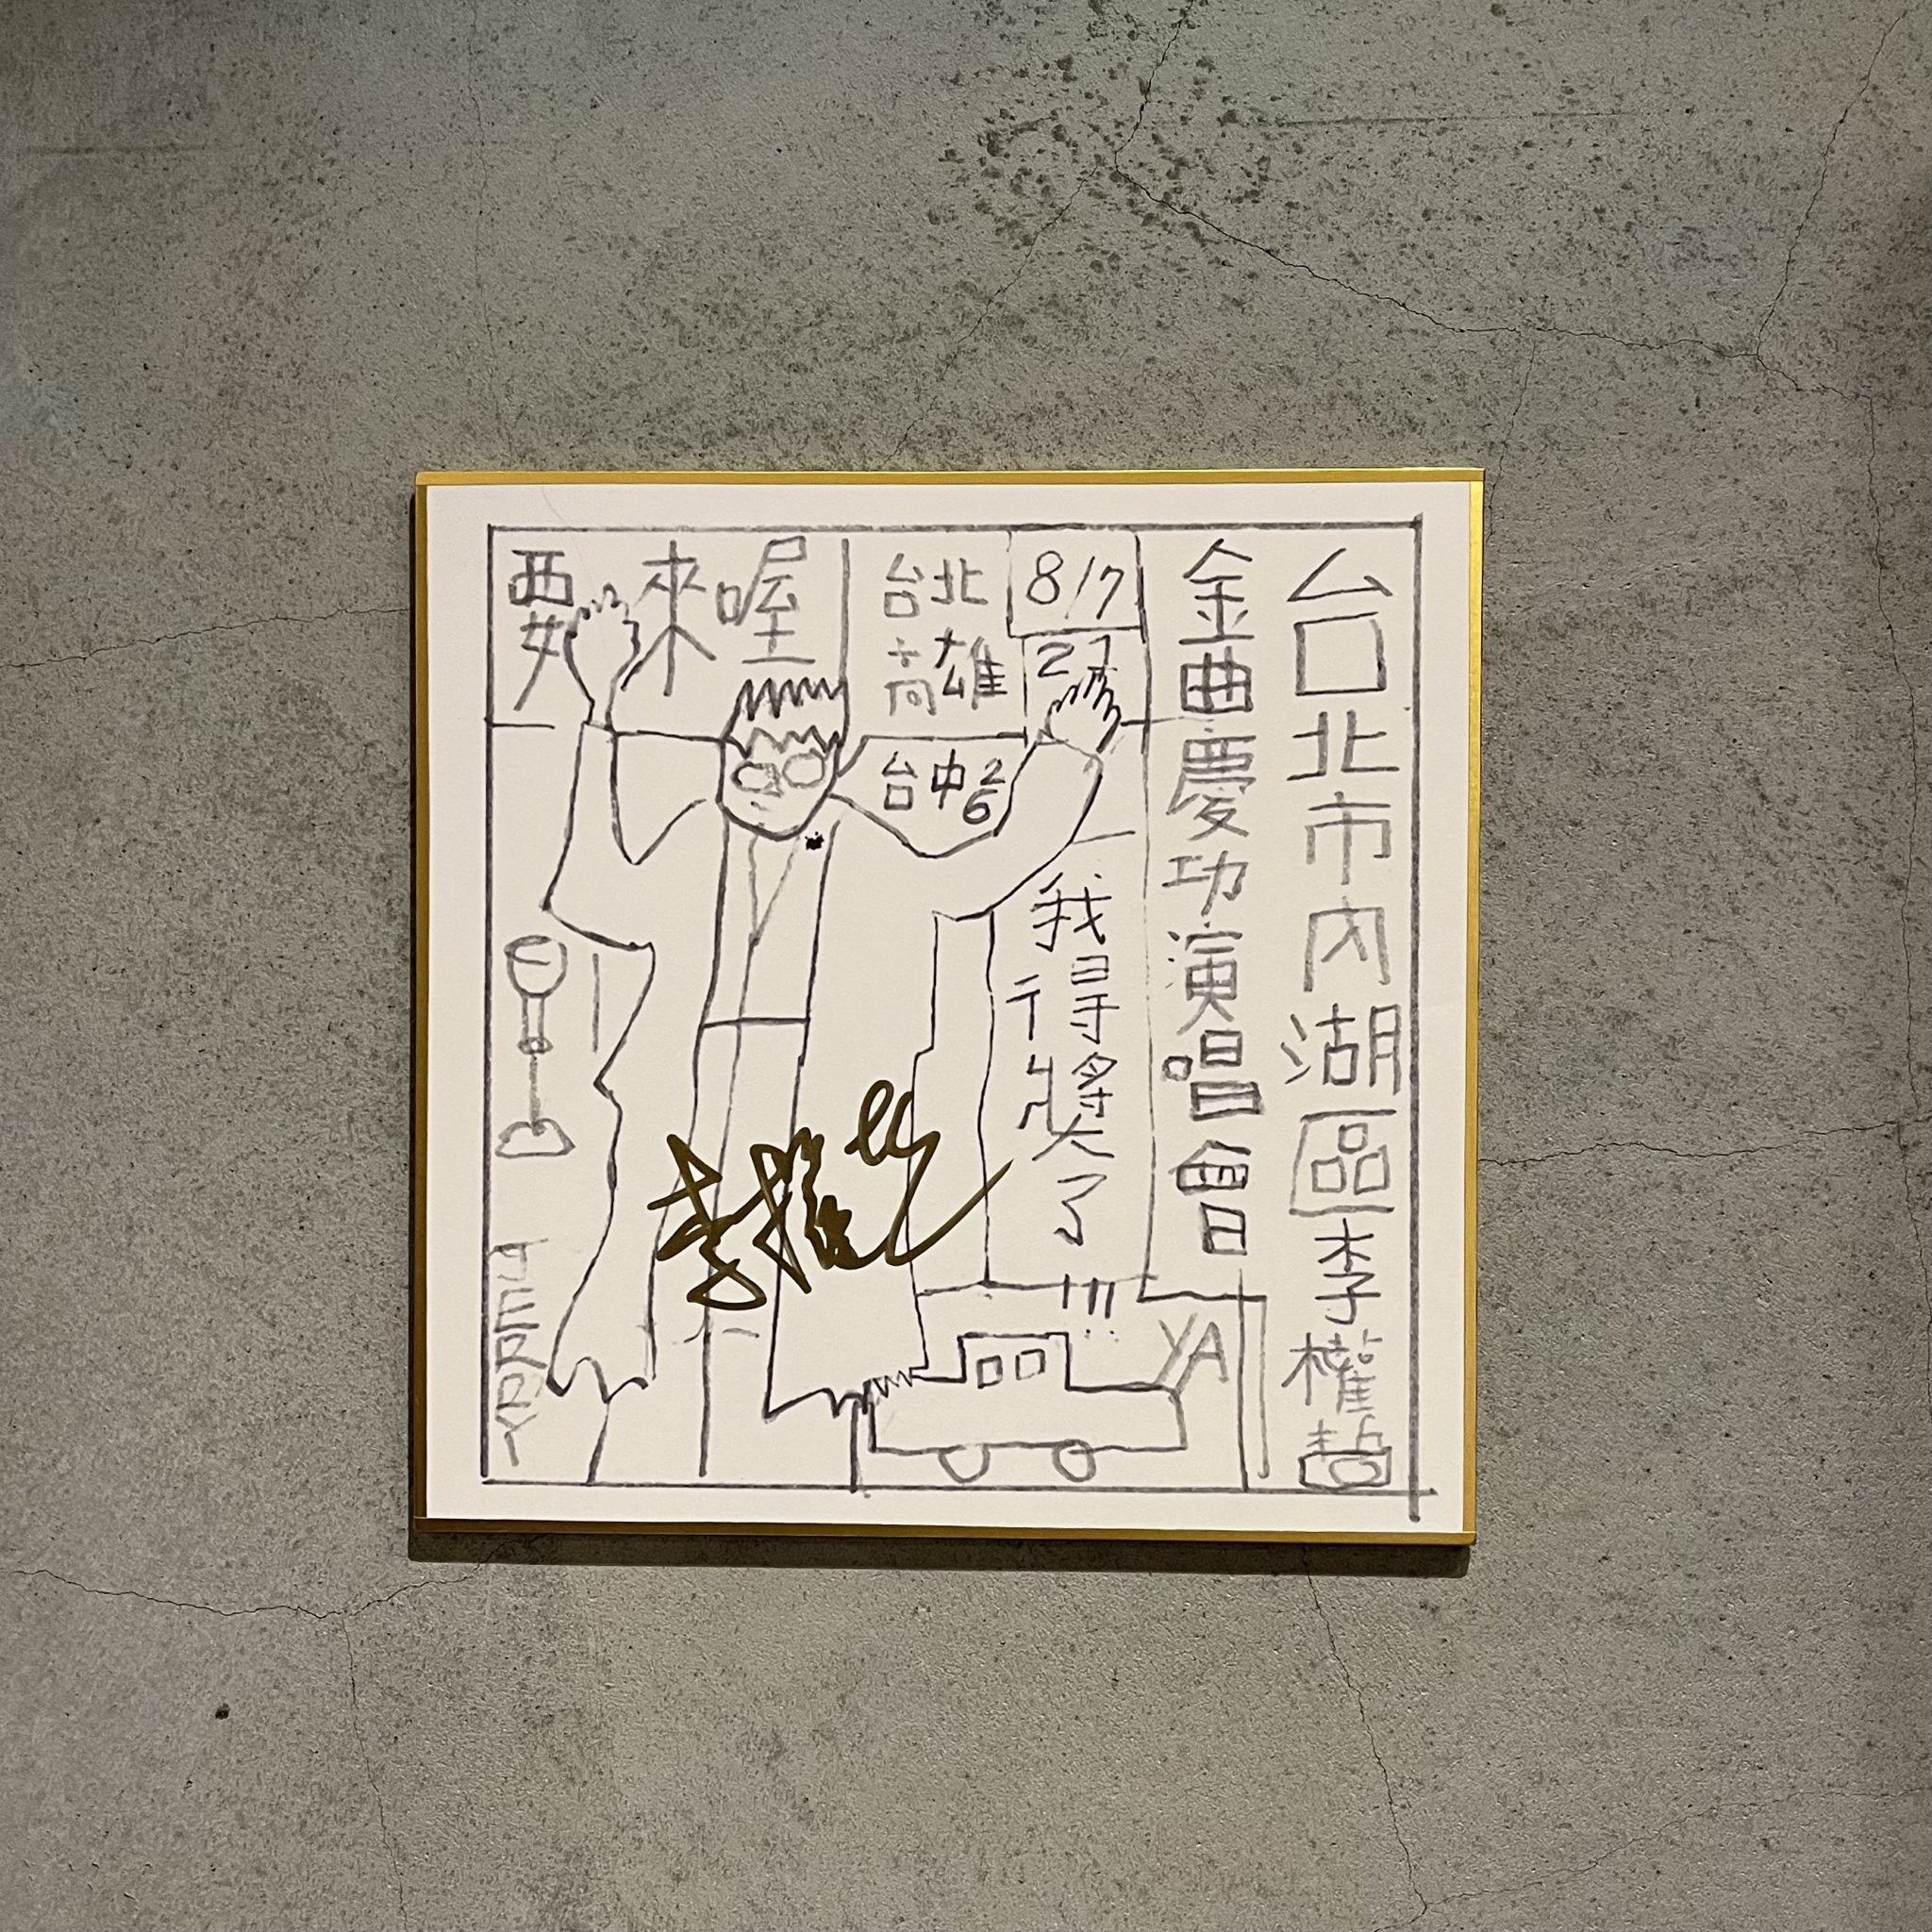 台北市內湖區李權哲
金曲慶功演唱會
8/7
27
台北
高雄
台中 26
要來喔
我得獎了!!!
YA
JERRY
李權哲